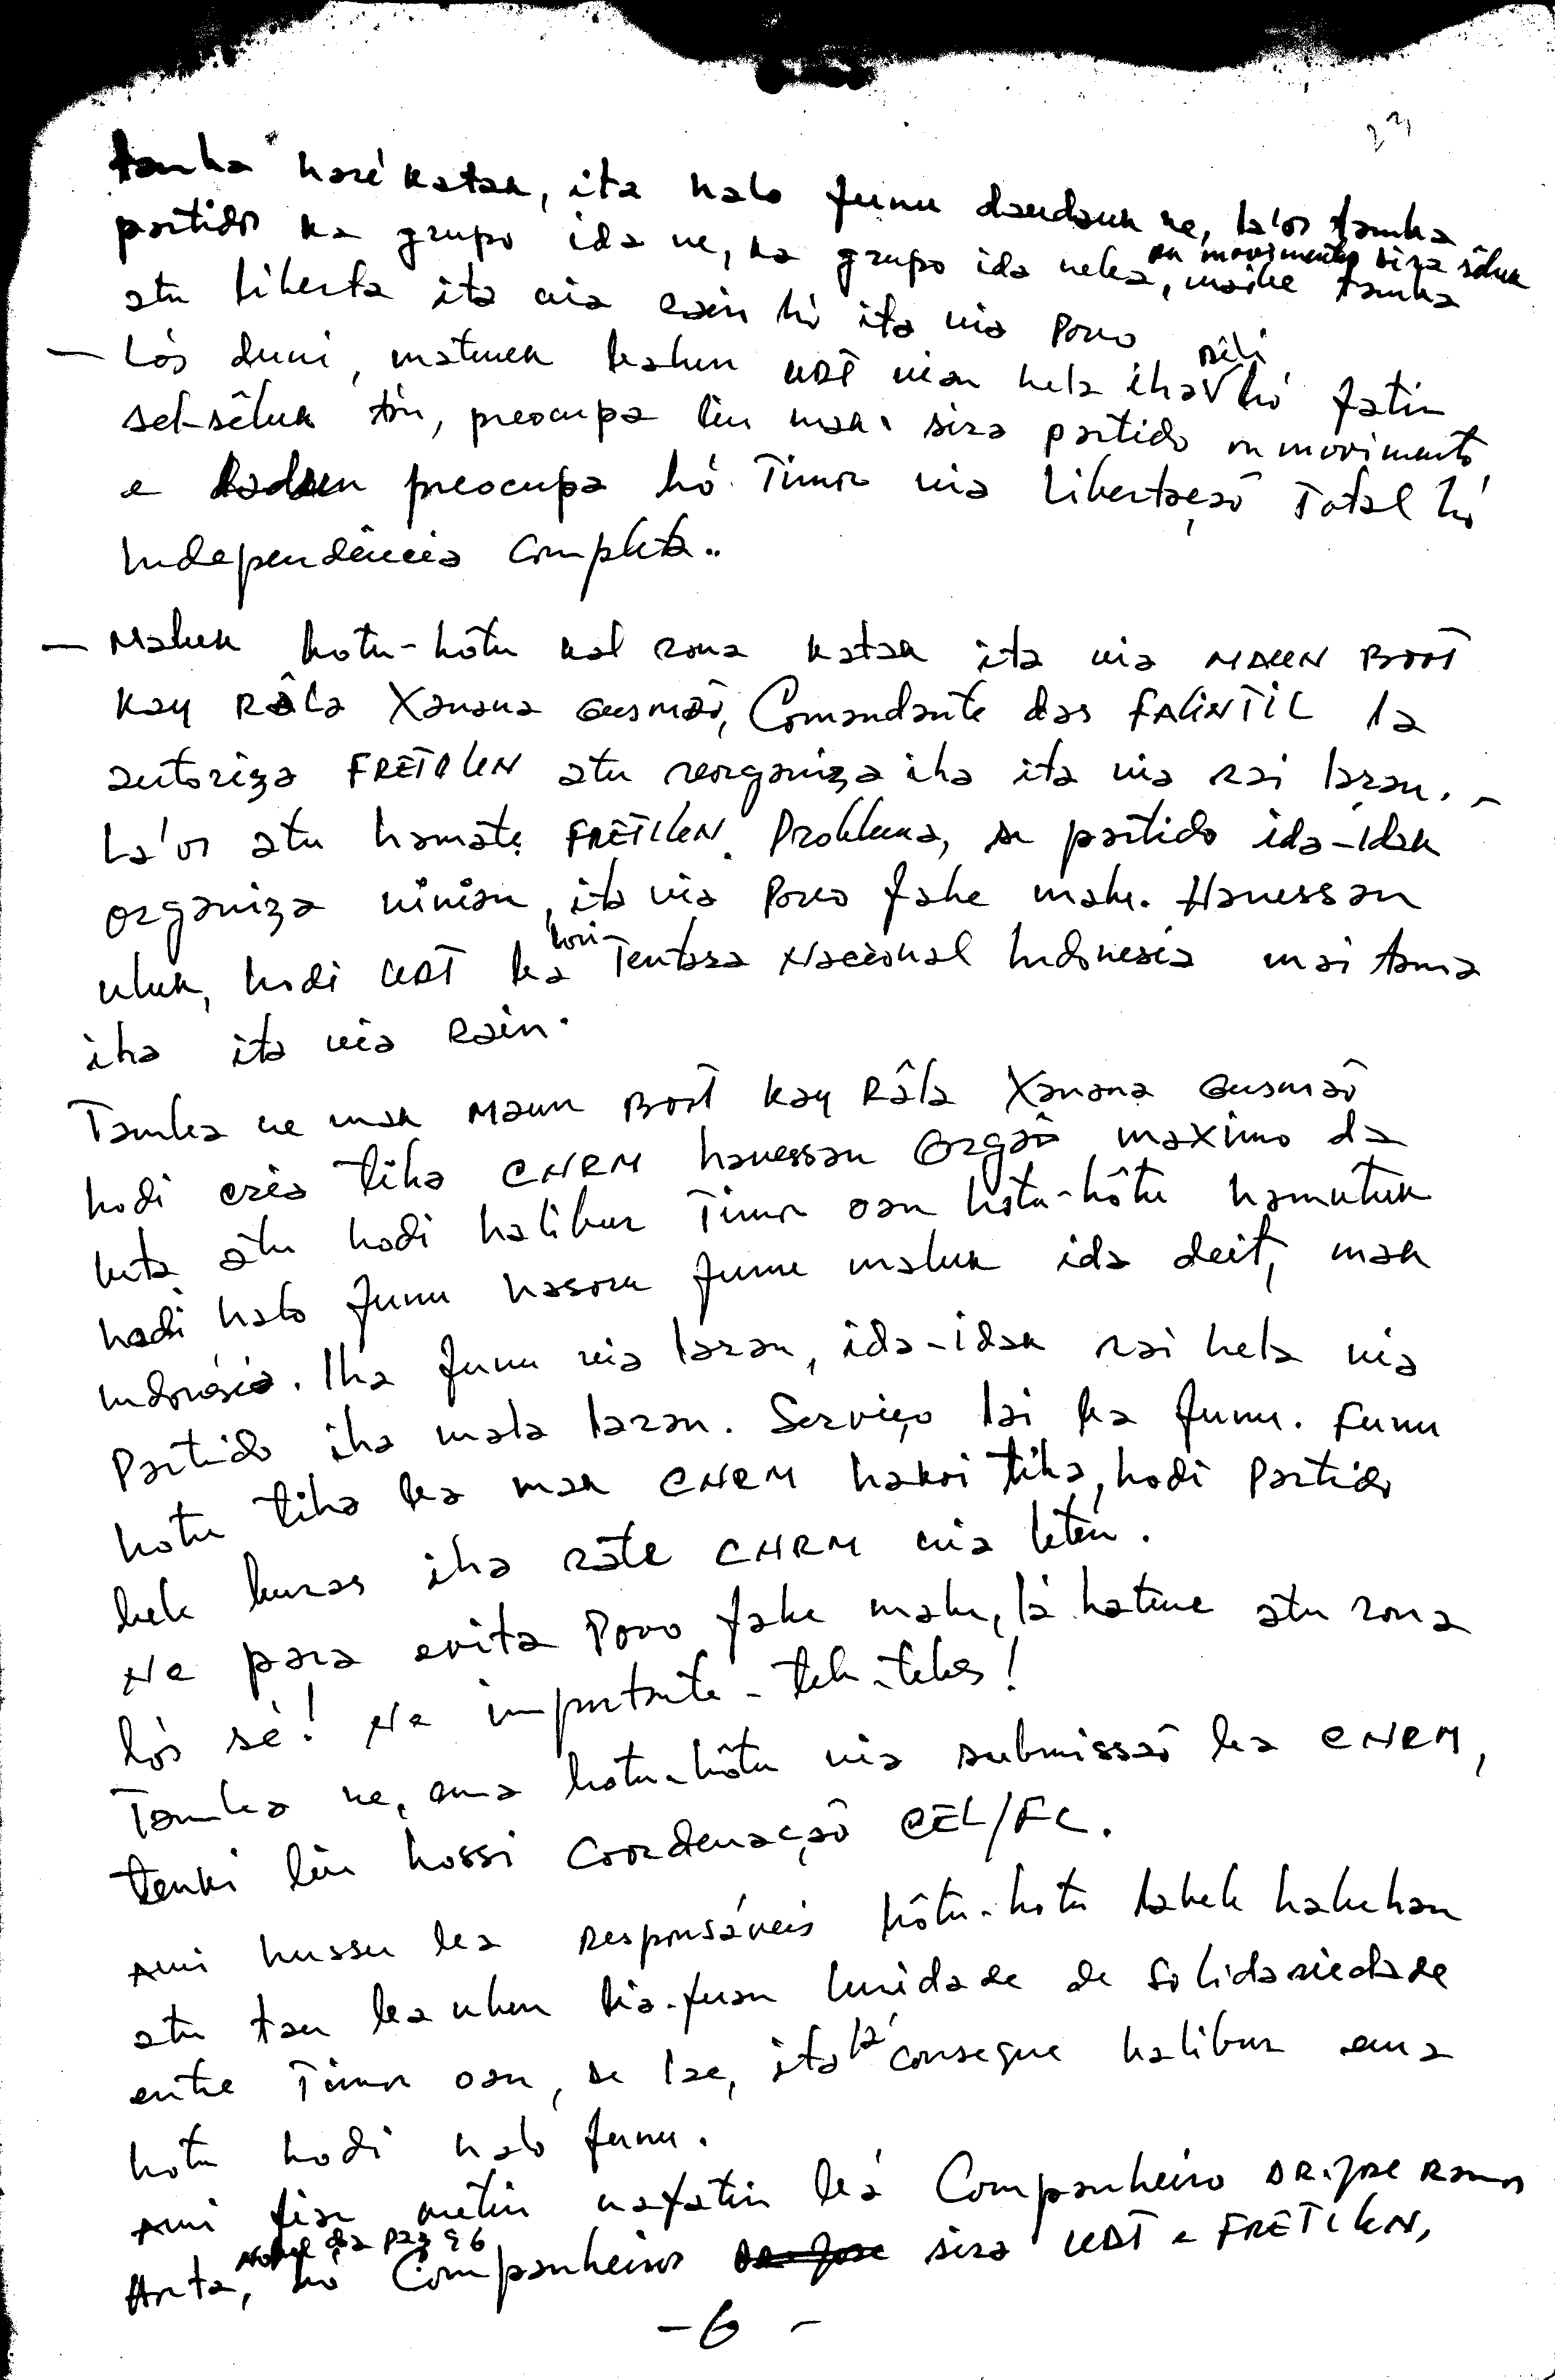 23
tamba haré katak, ita halo funu daudauk ne, la'os tamba
partidos ka grupo ida ne, ka grupo ida neba, ou movimentos sira sêluk maibe tamba
atu liberta ita nia rain hó ita nia Povo
— Lós duni, matenek balun UDT nian hela iha Dili hó fatin
sel-sêluk tán, preocupa liu mak sira partido ou movimento
e preocupa hó Timor nia Libertação Total hó
Independência Completa..
— Maluk hotu-hôtu kal rona katak ita nia MAUN BOOT
Kay Râla Xanana Gusmão, Comandante das FALINTIL la
autoriza FRETILIN atu reorganiza iha ita nia rai laran. -
La'os atu hamate FRETILIN. Problema, se partido ida-idak
organiza ninian, ita nia Povo fahe malu. Hanessan
uluk, hodi UDT ba hori Tentara Nacional Indonesia mai tama
iha ita nia Rain.
Tamba ne mak Maun Boot Kay Râla Xanana Gusmão
hodi cria tiha CNRM hanessan Orgão maximo da
luta atu hodi halibur Timor oan hotu-hôtu hamutuk
hodi halo funu hasoru funu maluk ida deit, mak
Indonésia. Iha funu nia laran, ida-idak rai hela nia
Partido iha mala laran. Serviço lai ba funu. Funu
hotu tiha ba mak CNRM hakoi tiha, hodi Partido
bele buras iha rate CNRM nia leten.
Ne para evita Povo fahe malu, lá hatene atu rona
lós sé! Ne importante-teb-tebes!
Tamba ne, ema hotu-hôtu nia submissão ba CNRM,
tenki liu hossi Coordenação CEL/FC.
Ami hussu ba Responsáveis hôtu-hotu labele haluhan
atu tau ba ulun lia-fuan Unidade de Solidariedade
entre Timor oan, se lae, ita la consegue halibur ema
hotu hodi halo funu.
Ami fiar metin nafatin bá Companheiro DR. José Ramos
Horta, Nobel da Paz 96 hó Companheiros sira UDT e FRETILIN,
- 6 -